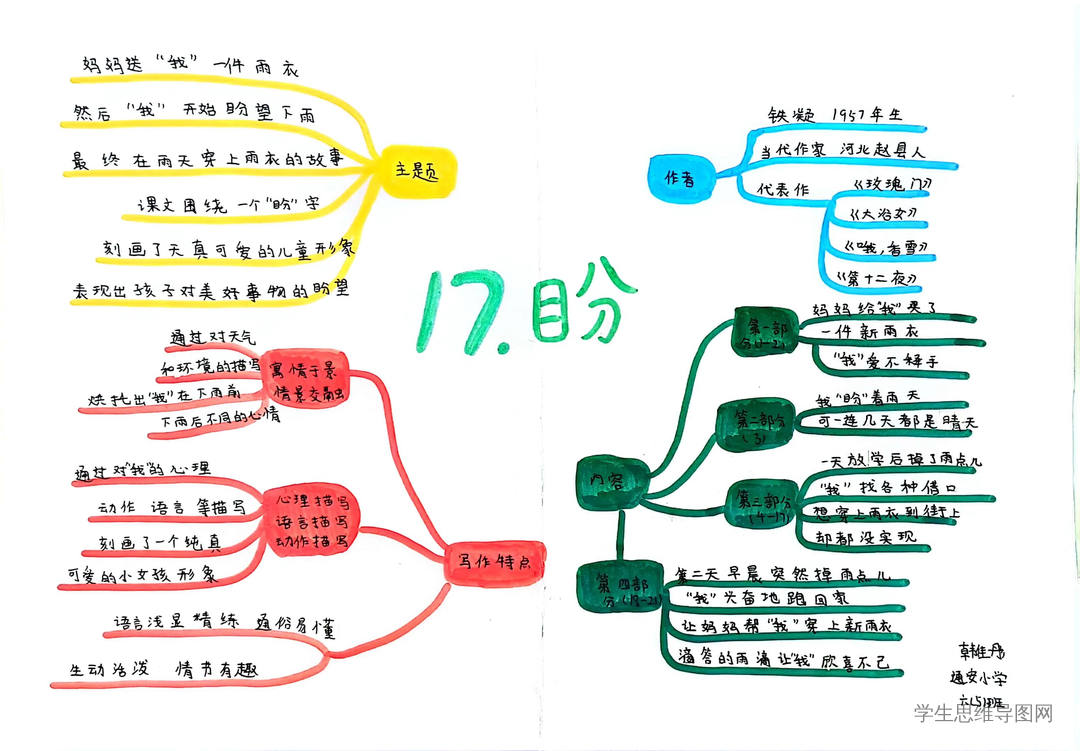 17.盼
主题
妈妈送“我”一件雨衣
然后“我”开始盼望下雨
最终在雨天穿上雨衣的故事
课文围绕一个“盼”字
刻画了天真可爱的儿童形象
表现出孩子对美好事物的盼望
作者
铁凝 1957年生
当代作家 河北赵县人
代表作
《玫瑰门》
《大浴女》
《哦,香雪》
《第十二夜》
内容
第一部
分(1-2)
妈妈给“我”买了
一件新雨衣
“我”爱不释手
第二部分
(3)
我“盼”着雨天
可一连几天都是晴天
第三部分
(4-17)
一天放学后掉了雨点儿
“我”找各种借口
想穿上雨衣到街上
却都没实现
第四部
分(18-21)
第二天早晨突然掉雨点儿
“我”兴奋地跑回家
让妈妈帮“我”穿上新雨衣
滴答的雨滴让“我”欣喜不已
写作特点
寓情于景
情景交融
通过对天气
和环境的描写
烘托出“我”在下雨前
下雨后不同的心情
心理描写
语言描写
动作描写
通过对“我”的心理
动作 语言 等描写
刻画了一个纯真
可爱的小女孩形象
语言浅显精练 通俗易懂
生动活泼 情节有趣
通安小学
六(5)班
学生思维导图网